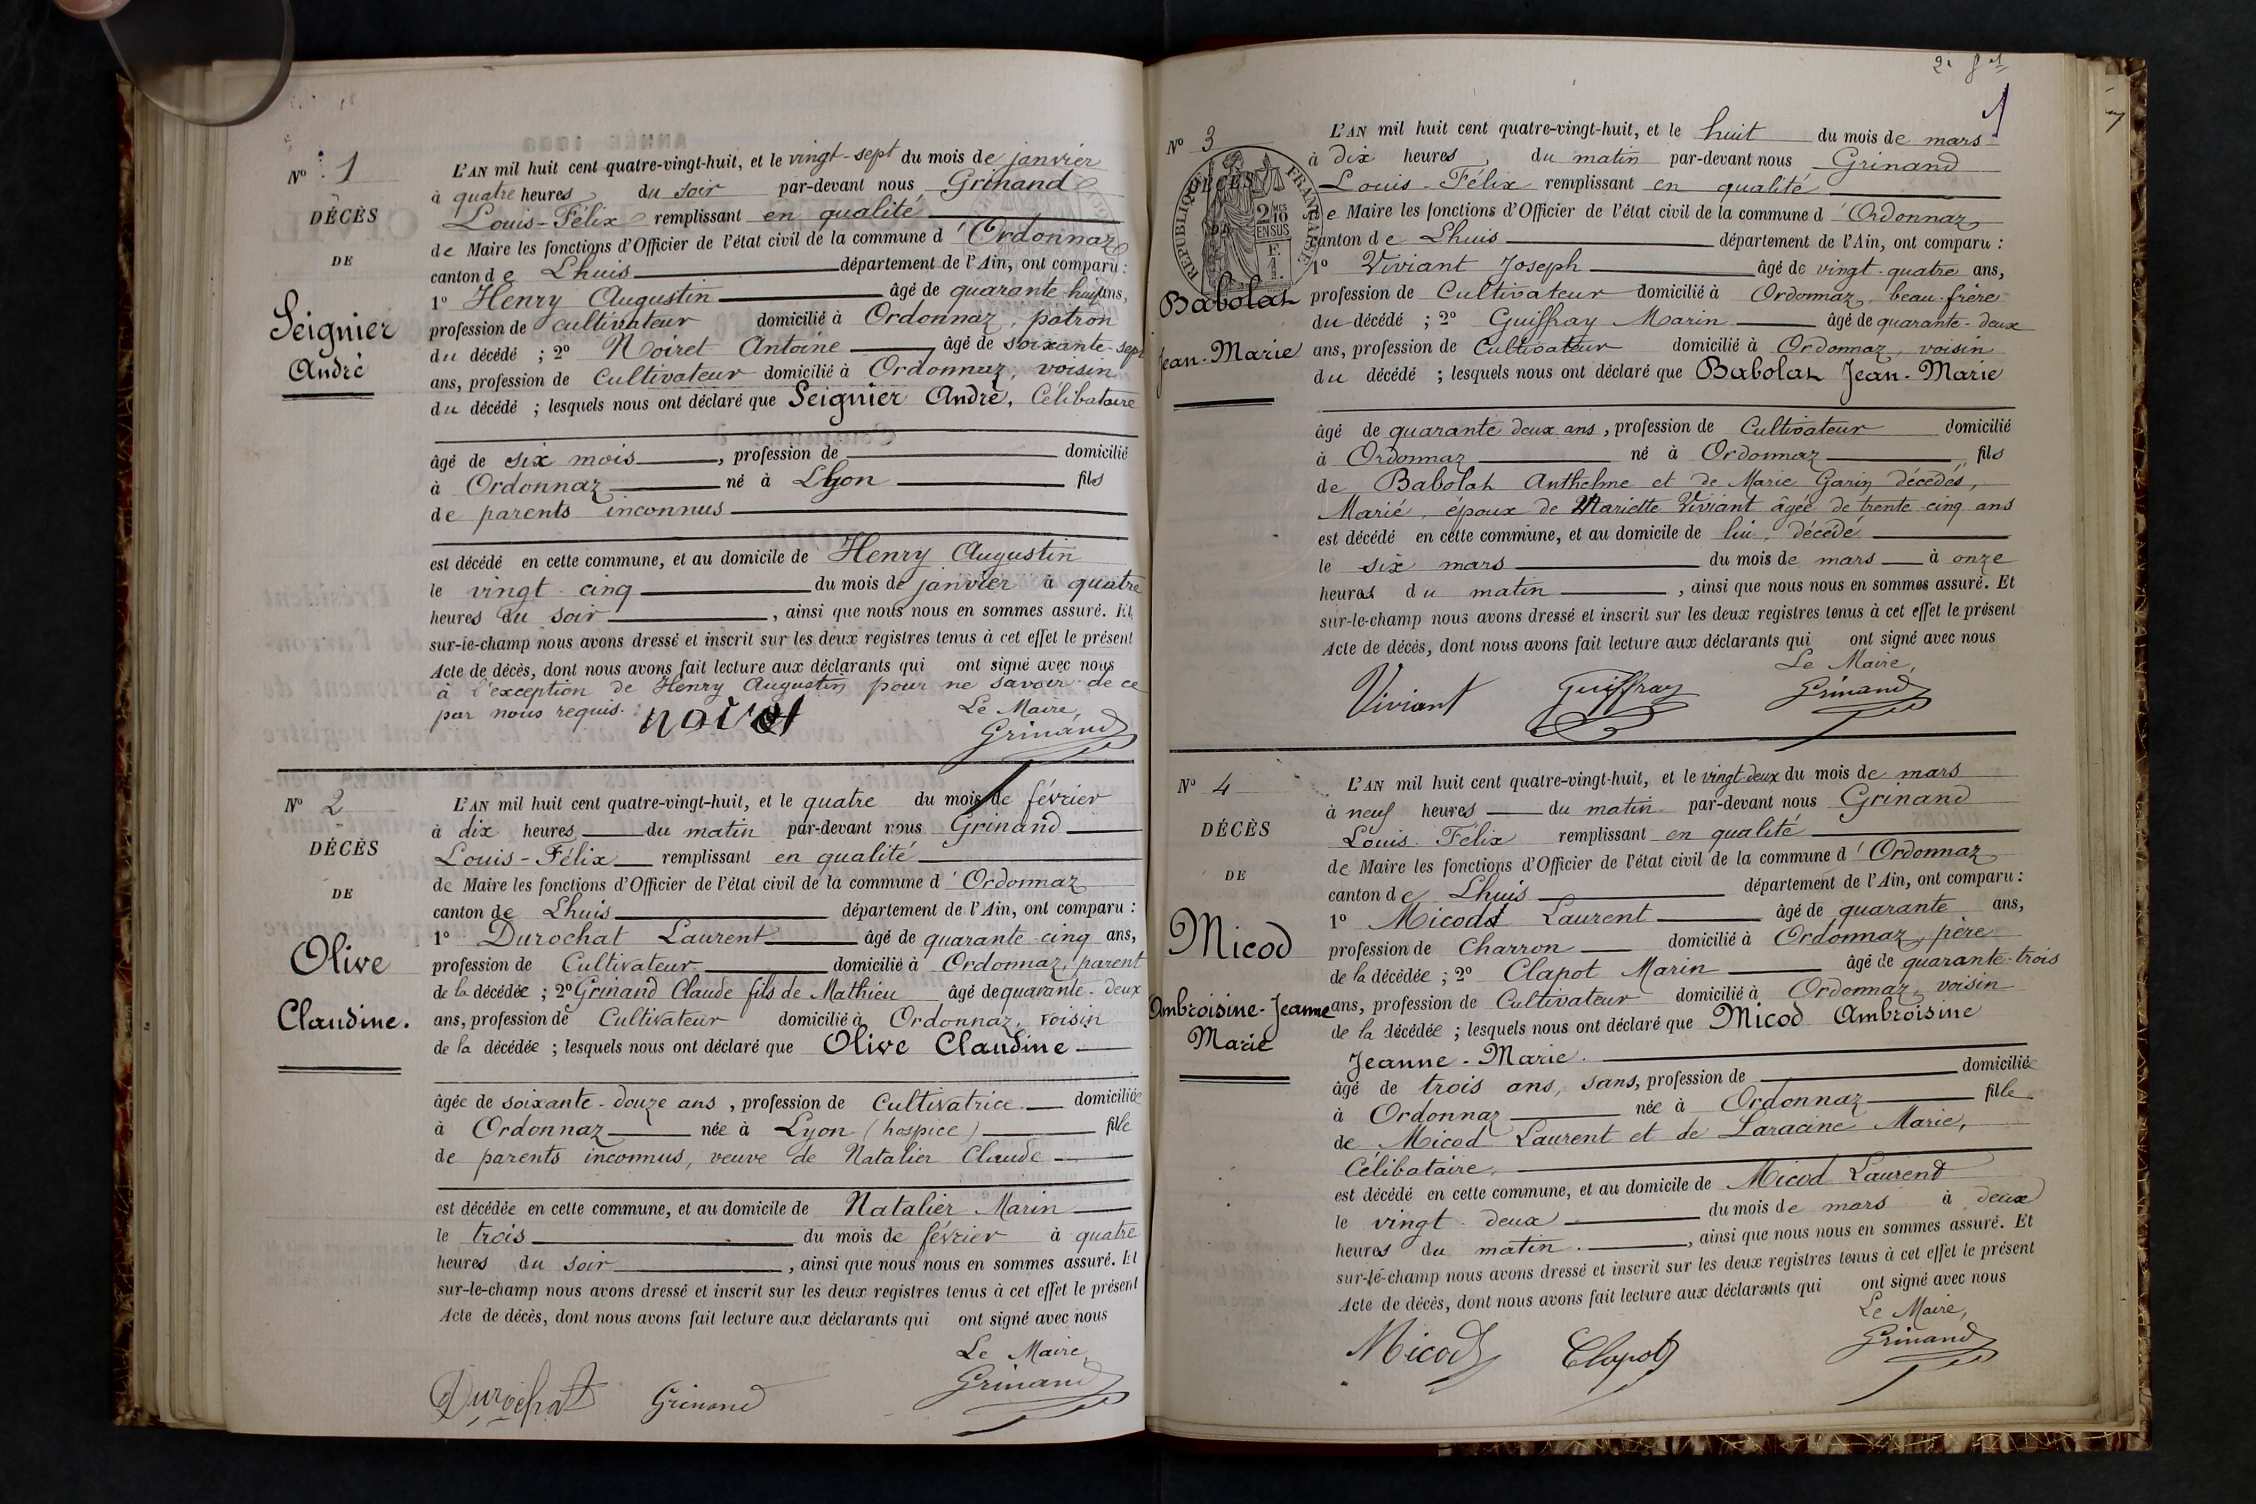 N° 1
DÉCÈS
DE
Seignier
André
L'AN mil huit cent quatre-vingt-huit, et le vingt-sept du mois de janvier
à quatre heures du soir par-devant nous Grinand
Louis-Félix remplissant en qualité
de Maire les fonctions d'Officier de l'état civil de la commune d'Ordonnaz
canton de Lhuis département de l'Ain, ont comparu :
1° Henry Augustin âgé de quarante-huit ans,
profession de cultivateur domicilié à Ordonnaz, patron
du décédé ; 2° Noiret Antoine âgé de soixante-sept
ans, profession de Cultivateur domicilié à Ordonnaz, voisin
du décédé ; lesquels nous ont déclaré que Seignier André, Célibataire
âgé de six mois, profession de domicilié
à Ordonnaz né à Lyon fils
de parents inconnus
est décédé en cette commune, et au domicile de Henry Augustin
le vingt cinq du mois de janvier à quatre
heures du soir, ainsi que nous nous en sommes assuré. Et
sur-le-champ nous avons dressé et inscrit sur les deux registres tenus à cet effet le présent
Acte de décès, dont nous avons fait lecture aux déclarants qui ont signé avec nous
à l'exception de Henry Augustin pour ne savoir de ce
par nous requis.
Le Maire,
Noiret Grinand
N° 2
DÉCÈS
DE
Olive
Claudine.
L'AN mil huit cent quatre-vingt-huit, et le quatre du mois de février
à dix heures du matin par-devant nous Grinand
Louis-Félix remplissant en qualité
de Maire les fonctions d'Officier de l'état civil de la commune d'Ordonnaz
canton de Lhuis département de l'Ain, ont comparu :
1° Durochat Laurent âgé de quarante-cinq ans,
profession de Cultivateur domicilié à Ordonnaz, parent
de la décédée ; 2° Grinand Claude fils de Mathieu âgé de quarante-deux
ans, profession de Cultivateur domicilié à Ordonnaz, voisin
de la décédée ; lesquels nous ont déclaré que Olive Claudine
âgée de soixante-douze ans, profession de Cultivatrice domiciliée
à Ordonnaz née à Lyon (hospice) fille
de parents inconnus, veuve de Natalier Claude
est décédée en cette commune, et au domicile de Natalier Marin
le trois du mois de février à quatre
heures du soir, ainsi que nous nous en sommes assuré. Et
sur-le-champ nous avons dressé et inscrit sur les deux registres tenus à cet effet le présent
Acte de décès, dont nous avons fait lecture aux déclarants qui ont signé avec nous
Le Maire,
Durochat Grinand Grinand
2e f et
N° 3
DÉCÈS
RÉPUBLIQUE FRANÇAISE
2/10 EN SUS
F. 1.
Babolat
Jean-Marie
L'AN mil huit cent quatre-vingt-huit, et le huit du mois de mars
à dix heures du matin par-devant nous Grinand
Louis-Félix remplissant en qualité
de Maire les fonctions d'Officier de l'état civil de la commune d'Ordonnaz
canton de Lhuis département de l'Ain, ont comparu :
1° Viviant Joseph âgé de vingt-quatre ans,
profession de Cultivateur domicilié à Ordonnaz, beau-frère
du décédé ; 2° Guiffray Marin âgé de quarante-deux
ans, profession de Cultivateur domicilié à Ordonnaz, voisin
du décédé ; lesquels nous ont déclaré que Babolat Jean-Marie
âgé de quarante deux ans, profession de Cultivateur domicilié
à Ordonnaz né à Ordonnaz fils
de Babolat Anthelme et de Marie Garin décédés,
Marié, époux de Mariette Viviant âgée de trente-cinq ans
est décédé en cette commune, et au domicile de lui, décédé
le six mars du mois de mars à onze
heures du matin, ainsi que nous nous en sommes assuré. Et
sur-le-champ nous avons dressé et inscrit sur les deux registres tenus à cet effet le présent
Acte de décès, dont nous avons fait lecture aux déclarants qui ont signé avec nous
Le Maire,
Viviant Guiffray Grinand
N° 4
DÉCÈS
DE
Micod
Ambroisine-Jeanne
Marie
L'AN mil huit cent quatre-vingt-huit, et le vingt-deux du mois de mars
à neuf heures du matin par-devant nous Grinand
Louis-Félix remplissant en qualité
de Maire les fonctions d'Officier de l'état civil de la commune d'Ordonnaz
canton de Lhuis département de l'Ain, ont comparu :
1° Micod Laurent âgé de quarante ans,
profession de Charron domicilié à Ordonnaz, père
de la décédée ; 2° Clapot Marin âgé de quarante-trois
ans, profession de Cultivateur domicilié à Ordonnaz, voisin
de la décédée ; lesquels nous ont déclaré que Micod Ambroisine
Jeanne-Marie.
âgé de trois ans, sans, profession de domiciliée
à Ordonnaz née à Ordonnaz fille
de Micod Laurent et de Laracine Marie,
Célibataire,
est décédé en cette commune, et au domicile de Micod Laurent
le vingt-deux du mois de mars à deux
heures du matin, ainsi que nous nous en sommes assuré. Et
sur-le-champ nous avons dressé et inscrit sur les deux registres tenus à cet effet le présent
Acte de décès, dont nous avons fait lecture aux déclarants qui ont signé avec nous
Le Maire,
Micod Clapot Grinand